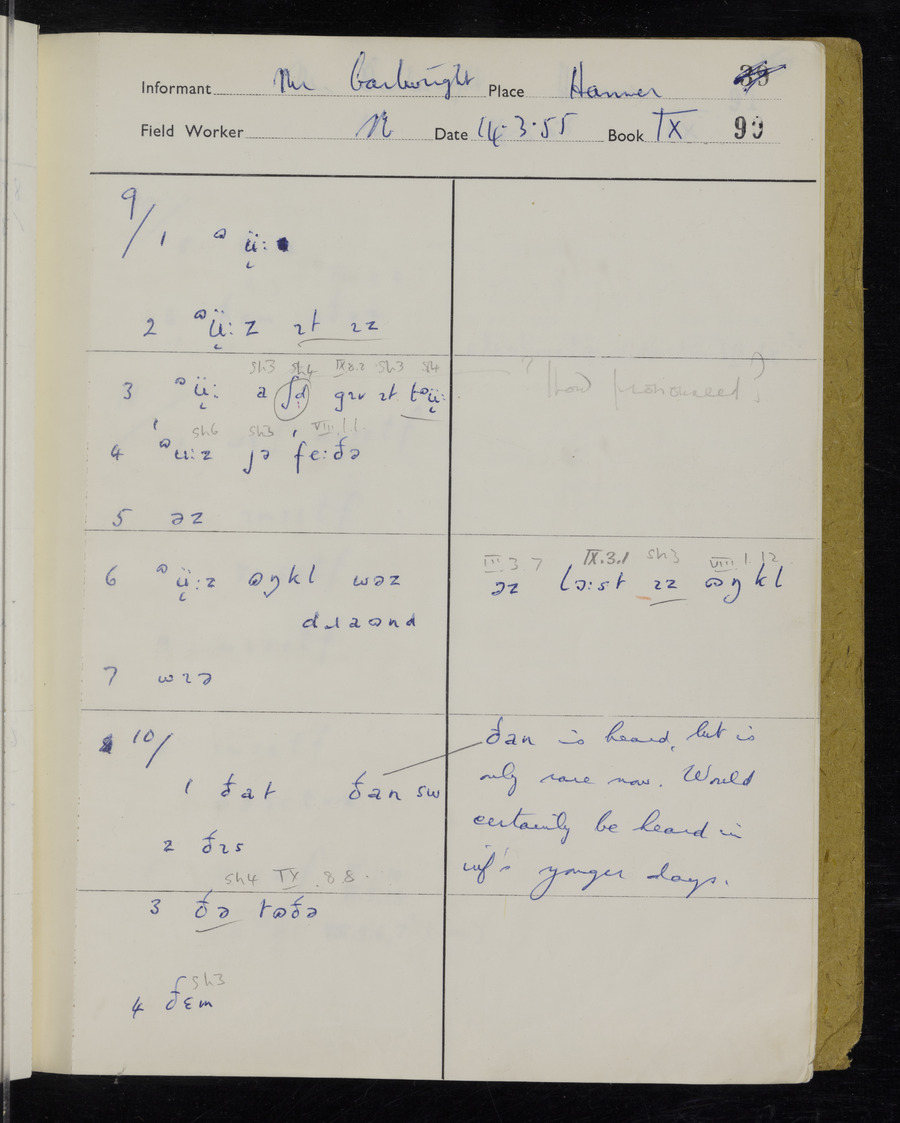 Informant Mr Cartwright Place Hanmer
Field Worker Date 14·3·55 Book IX 90
9/
1 ᶷü̜:
2 ᶷü̜:z ɪt ɪz
sh3 sh4 IX.8.2 sh3 sh4
3 ᶷü̜: a ʃd gɪv ɪt tᶷü̜:
(How pronounced?)
sh6 sh3 VIII.1.1.
4 ˈᶷu:z jə ˈfe:ðə
5 əz
III.3 7 IX.3.1 sh3 VIII.1.12
6 ᶷü̜:z ɷŋkl wəz əz lə:st ɪz ɷŋkl
dɹaɷnd
7 wɪə
10/
ðan is heard, but is
only rare now. Would
certainly be heard in
inf's yonger days.
1 ðat ðan sw
2 ðɪs
sh4 IX 8 8.
3 ðə tɷðə
sh3
4 ðɛm